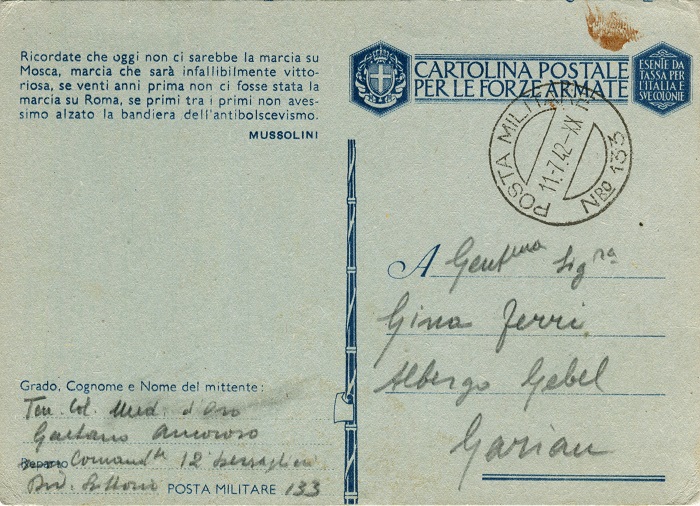 Ricordate che oggi non ci sarebbe la marcia su
Mosca, marcia che sarà infallibilmente vitto-
riosa, se venti anni prima non ci fosse stata la
marcia su Roma, se primi tra i primi non aves-
simo alzato la bandiera dell'antibolscevismo.
MUSSOLINI
CARTOLINA POSTALE
PER LE FORZE ARMATE
ESENTE DA
TASSA PER
L'ITALIA E
SVE COLONIE
POSTA MILITARE
11·7·42-XX
NRO 133
A Gent.ma Sig.ra
Gina Ferri
Albergo Gebel
Garian
Grado, Cognome e Nome del mittente:
Ten. Col. Med. d'Oro
Gaetano Amoroso
Reparto Comand.te 12° bersaglieri
Div. Littorio POSTA MILITARE 133